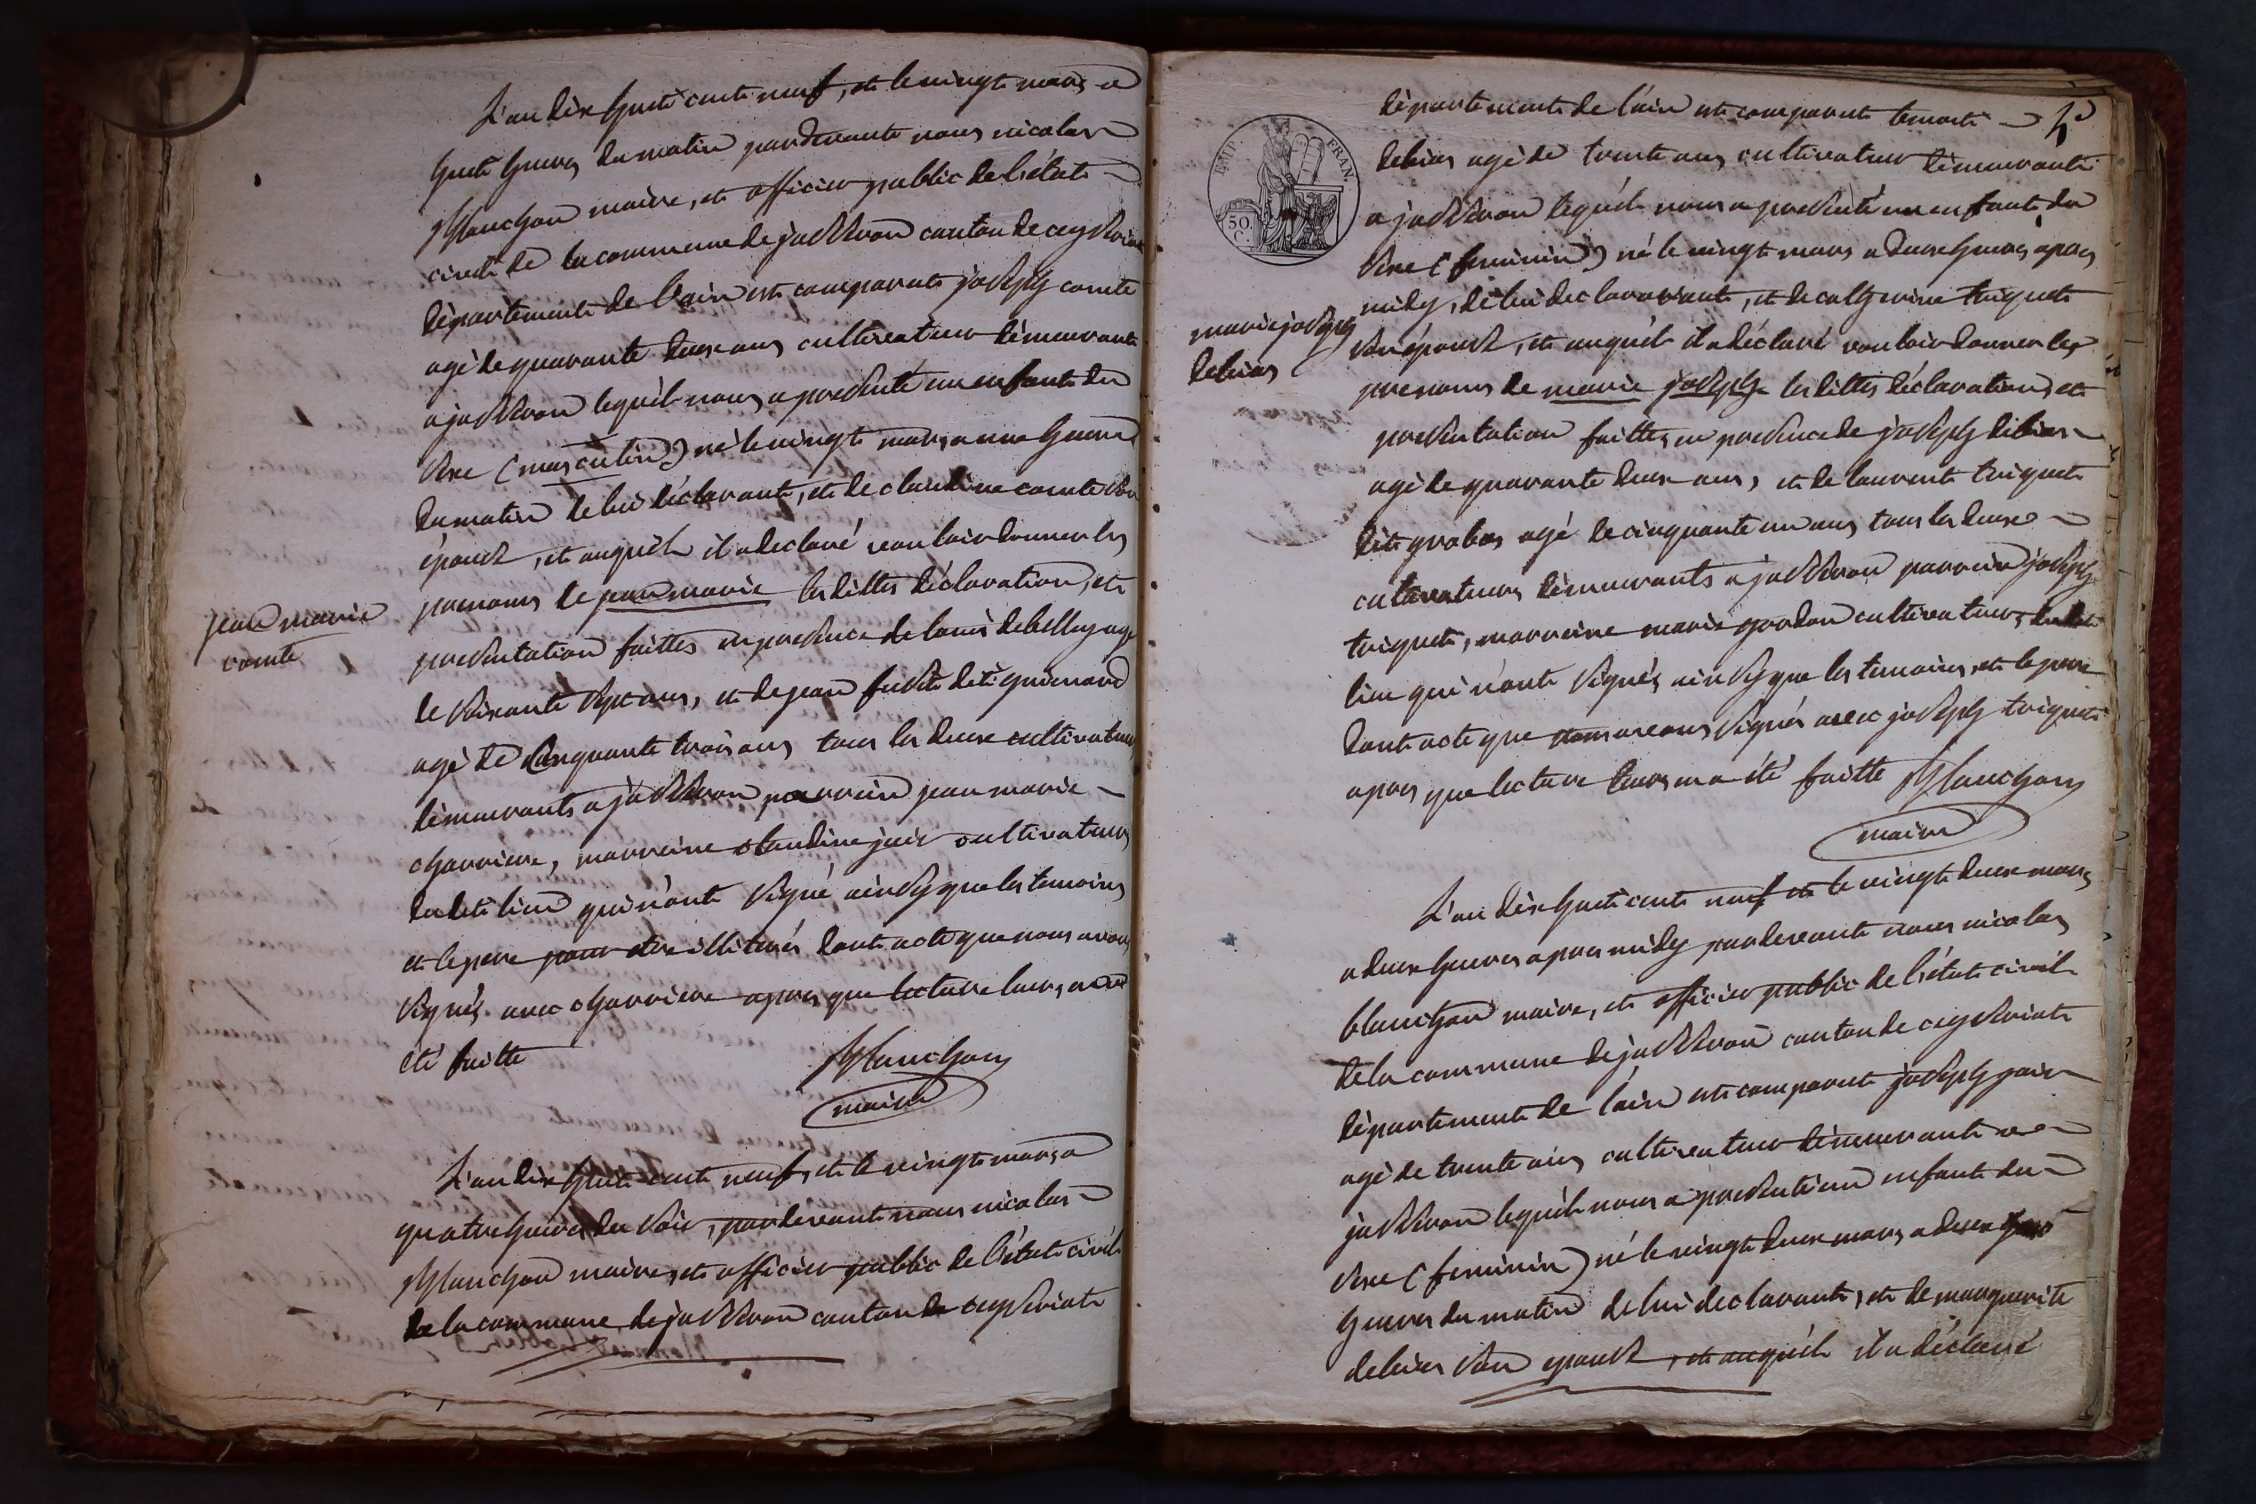 L'an dix huit cent neuf, et le vingt mars a
huit heures du matin pardevant nous nicolas
Blanchon maire, et officier public de l'état
civil de la commune de jasseron canton de ceyseriat
département de l'ain est comparut joseph comte
agé de quarante deux ans cultivateur démeurant
a jasseron lequél nous a presenté un enfant du
sexe (masculin) né le vingt mars a une heure
du matin de lui déclarant, et de claudine comte son
épouse, et auquél il a declaré vouloir donner les
prenoms de jean marie les dittes déclaration, et
presentation faittes en presence de louis debelley agé
de soixante sept ans, et de jean dit
agé de cinquante trois ans tous les deux cultivateurs
démeurants a jasseron parrein jean marie
charriere, marreine claudine juis cultivateurs
du dit lieu qui n'ont signé ainsy que les temoins
et le pere pour etre illiturés dont acte que nous avons
signés avec charriere apres que lecture leurs en a
été faitte Blanchon
maire
jean marie
comte
L'an dix huit cent neuf, et le vingt mars a
quatre heures du soir, pardevant nous nicolas
Blanchon maire, et officier public de l'état civil
de la commune de jasseron canton de ceyseriat
département de l'ain est comparut
debias agé de trente ans cultivateur démeurant
a jasseron lequél nous a presenté un enfant du
sexe (feminin) né le vingt mars a deux heures apres
midy, de lui declarant, et de catherine triquet
son épouse, et auquél il a déclaré vouloir donner les
prenoms de marie joseph les dittes déclaration, et
presentation faittes en presence de joseph debias
agé de quarante deux ans, et de laurent triquet
dit agé de cinquante un ans tous les deux
cultivateurs démeurants a jasseron parrein joseph
triquet, marreine marie gordon cultivateurs du dit
lieu qui n'ont signés ainsy que les temoins, et le pere
dont acte que nous avons signés avec joseph triquet
apres que lecture leurs en a été faitte Blanchon
maire
marie joseph
debias
EMP. FRAN.
50.
C.
L'an dix huit cent neuf et le vingt deux mars
a deux heures apres midy pardevant nous nicolas
blanchon maire, et officier public de l'état civil
de la commune de jasseron canton de ceyseriat
département de l'ain est comparut joseph
agé de trente ans cultivateur démeurant a
jasseron lequél nous a presenté un enfant du
sexe (feminin) né le vingt deux mars a deux
heures du matin de lui declarant, et de marguerite
debias son epouse, et auquél il a déclaré